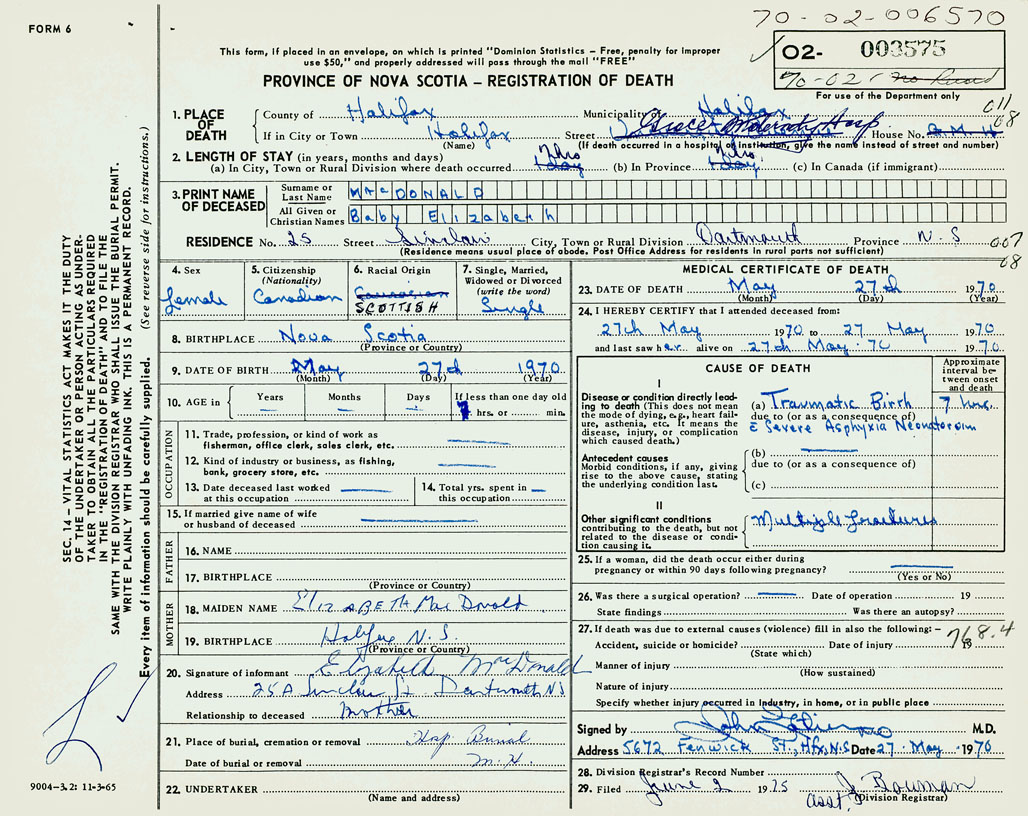 FORM 6
70-02-006570
02- 003575
70-02
For use of the Department only
This form, if placed in an envelope, on which is printed "Dominion Statistics — Free, penalty for improper
use $50," and properly addressed will pass through the mail "FREE"
PROVINCE OF NOVA SCOTIA — REGISTRATION OF DEATH
1. PLACE OF DEATH
County of Halifax Municipality Halifax 011
If in City or Town Halifax Street Grace Maternity Hosp House No. 08
(Name) (If death occurred in a hospital or institution, give the name instead of street and number)
2. LENGTH OF STAY (in years, months and days)
(a) In City, Town or Rural Division where death occurred 7 hrs 1 day (b) In Province 7 hrs. 1 day (c) In Canada (if immigrant)
3. PRINT NAME OF DECEASED
Surname or Last Name MacDONALD
All Given or Christian Names Baby Elizabeth
RESIDENCE No. 25 Street Sinclair City, Town or Rural Division Dartmouth Province N.S 007
(Residence means usual place of abode. Post Office Address for residents in rural parts not sufficient) 08
4. Sex Female
5. Citizenship (Nationality) Canadian
6. Racial Origin Caucasian SCOTTISH
7. Single, Married, Widowed or Divorced (write the word) Single
8. BIRTHPLACE Nova Scotia
(Province or Country)
9. DATE OF BIRTH May 27th 1970
(Month) (Day) (Year)
10. AGE in Years Months Days If less than one day old
7 hrs. or min.
OCCUPATION
11. Trade, profession, or kind of work as
fisherman, office clerk, sales clerk, etc.
12. Kind of industry or business, as fishing,
bank, grocery store, etc.
13. Date deceased last worked
at this occupation
14. Total yrs. spent in
this occupation
15. If married give name of wife
or husband of deceased
FATHER
16. NAME
17. BIRTHPLACE
(Province or Country)
MOTHER
18. MAIDEN NAME ELIZABETH MacDonald
19. BIRTHPLACE Halifax N.S.
(Province or Country)
20. Signature of informant Elizabeth MacDonald
Address 25A Sinclair St. Dartmouth NS
Relationship to deceased Mother
21. Place of burial, cremation or removal Hosp Burial
Date of burial or removal
22. UNDERTAKER
(Name and address)
MEDICAL CERTIFICATE OF DEATH
23. DATE OF DEATH May 27th 1970
(Month) (Day) (Year)
24. I HEREBY CERTIFY that I attended deceased from:
27th May 1970 to 27 May 1970
and last saw her alive on 27th May. 70 1970
CAUSE OF DEATH
Approximate interval between onset and death
I
Disease or condition directly leading to death (This does not mean the mode of dying, e.g., heart failure, asthenia, etc. It means the disease, injury, or complication which caused death.)
(a) Traumatic Birth 7 hrs.
due to (or as a consequence of)
Severe Asphyxia Neonatorum
Antecedent causes
Morbid conditions, if any, giving rise to the above cause, stating the underlying condition last.
(b)
due to (or as a consequence of)
(c)
II
Other significant conditions
contributing to the death, but not related to the disease or condition causing it.
Multiple fractures
25. If a woman, did the death occur either during
pregnancy or within 90 days following pregnancy?
(Yes or No)
26. Was there a surgical operation? Date of operation 19
State findings Was there an autopsy?
27. If death was due to external causes (violence) fill in also the following: — 768.4
Accident, suicide or homicide? Date of injury 19
(State which)
Manner of injury
(How sustained)
Nature of injury
Specify whether injury occurred in Industry, in home, or in public place
Signed by John M.D.
Address 5672 Fenwick St., Hfx, N.S Date 27 May 1970
28. Division Registrar's Record Number
29. Filed June 2 1975 J Bowman
Asst. (Division Registrar)
SEC. 14 — VITAL STATISTICS ACT MAKES IT THE DUTY
OF THE UNDERTAKER OR PERSON ACTING AS UNDER-
TAKER TO OBTAIN ALL THE PARTICULARS REQUIRED
IN THE "REGISTRATION OF DEATH" AND TO FILE THE
SAME WITH THE DIVISION REGISTRAR WHO SHALL ISSUE THE BURIAL PERMIT.
WRITE PLAINLY WITH UNFADING INK. THIS IS A PERMANENT RECORD.
Every item of information should be carefully supplied. (See reverse side for instructions.)
9004-3.2: 11-3-65